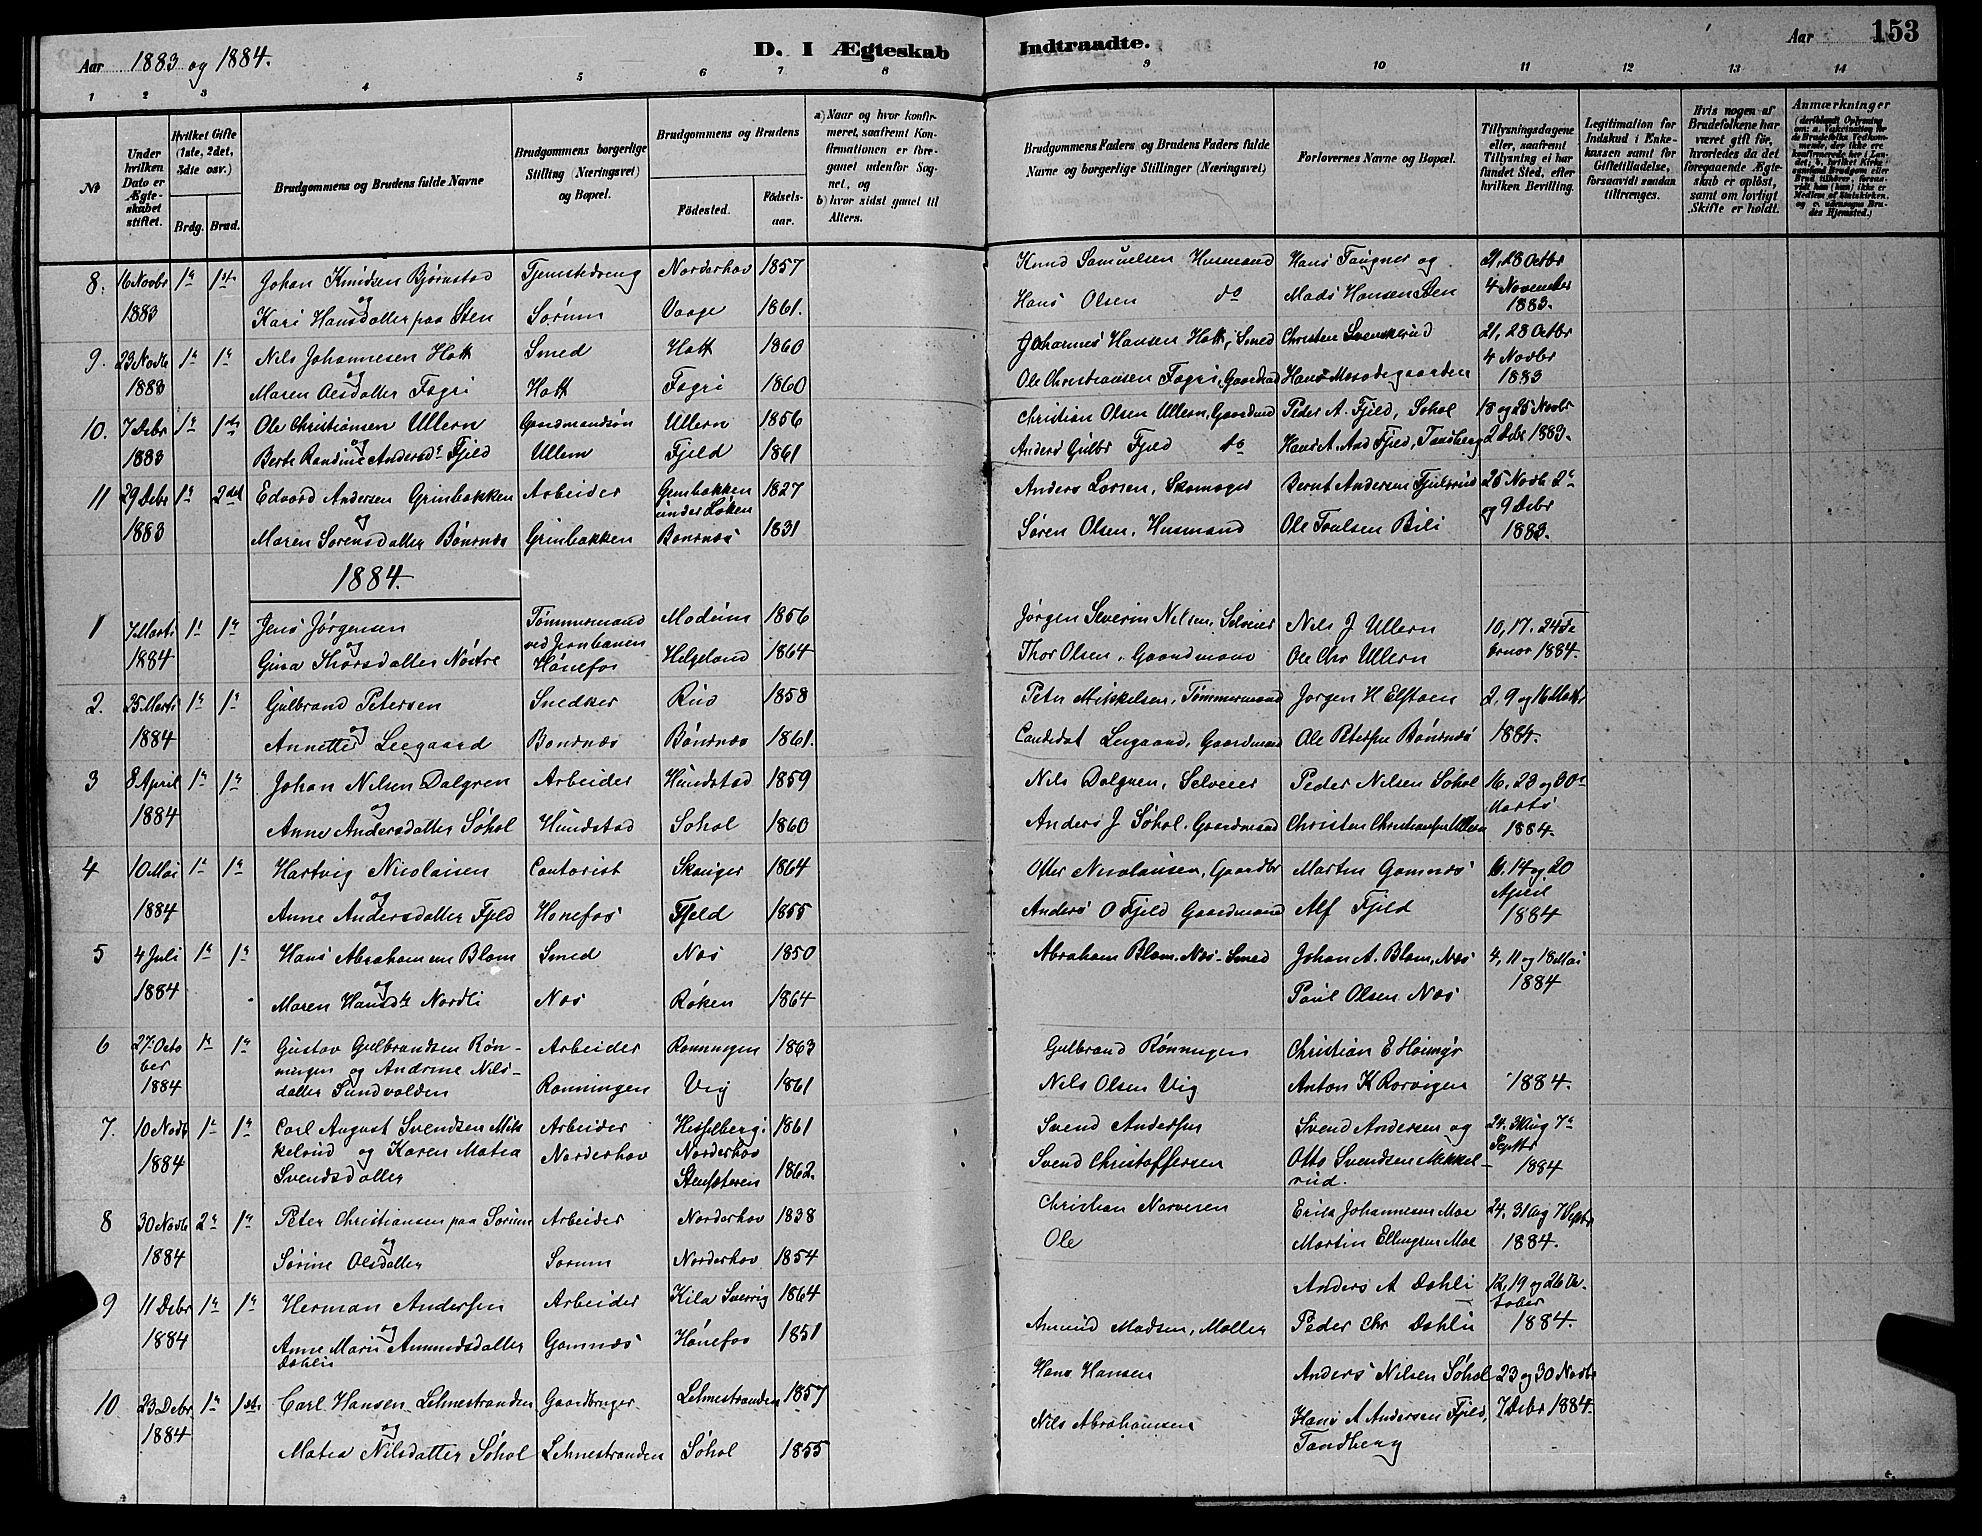 Aar 1883 og 1884.
D. I Ægteskab Indtraadte.
Aar
153
1 2 3 4 5 6 7 8 9 10 11 12 13 14
No
Under hvilken Dato er Ægteskabet stiftet.
Hvilket Gifte (1ste, 2det, 3die osv.)
Brdg. Brud.
Brudgommens og Brudens fulde Navne
Brudgommens borgerlige Stilling (Næringsvei) og Bopæl.
Brudgommens og Brudens
Fødested.
Fødselsaar.
a) Naar og hvor konfirmeret, saafremt Konfirmationen er foregaaet udenfor Sognet, og
b) hvor sidst gaaet til Alters.
Brudgommens Faders og Brudens Faders fulde Navne og borgerlige Stillinger (Næringsvei)
Forlovernes Navne og Bopæl.
Tillysningsdagene eller, saafremt Tillysning ei har fundet Sted, efter hvilken Bevilling.
Legitimation for Indskud i Enkekassen samt for Giftetilladelse, forsaavidt saadan tiltrænges.
Hvis nogen af Brudefolkene har været gift før, hvorledes da det foregaaende Ægteskab er opløst, samt om lovligt Skifte er holdt.
Anmærkninger
8. 16 Novbr 1ste 1ste Johan Knudsen Bjørnstad Tjenestedreng Norderhov 1857 Knud Samuelsen Husmand Hans Faugner og 21, 28 Octbr
1883 og Kari Hansdatter paa Sten Sørum Vaage 1861. Hans Olsen do Mads Hansen Sten 4 November 1883.
9. 23 Novb 1ste 1ste Nils Johannesen Hott Smed Hott 1860 Johannes Hansen Hott, Smed Christen Svenskerud 21, 28 Octbr
1883 og Maren Olsdatter Fagri Hott Fagri 1860 Ole Christiansen Fagri, Gaardmd Hans Mosodegaarden 4 Novbr 1883
10. 7 Debr 1ste 1ste Ole Christiansen Ullern Gaardmandsøn Ullern 1856 Christian Olsen Ullern, Gaardmd Peder A. Fjeld, Sohol 18 og 25 Novbr
1883 og Berte Randine Andersdr Fjeld Ullern Fjeld 1861 Anders Gulbr Fjeld do Hans A. And Fjeld, Tandberg 2 Debr 1883.
11 29 Debr 1ste 2det Edvard Andersen Grinbakken Arbeider Grinbakken under Loken 1827 Anders Larsen, Skomager Bernt Andersen Fjulsrud 25 Novb 2n
1883 og Maren Sorensdatter Bønsnæs Grinbakken Bonsnæs 1831 Søren Olsen, Husmand Ole Troulsen Bili og 9 Debr 1883.
1884.
1 7 Marts 1ste 1ste Jens Jørgensen Tømmermand Modum 1856 Jørgen Severin Nilsen, Selveier Nils J Ullern 10, 17. 24 Fe
1884 og Gina Thorsdatter Nöstre ved Jernbanen Hönefos Helgeland 1864 Thor Olsen, Gaardmand Ole Chr Ullern bruar 1884.
2. 25 Marts 1ste 1ste Gulbrand Petersen Snedker Rud 1858 Peter Mikkelsen, Tømmermand Jorgen H Elstoen 2, 9 og 16 Marts
1884 og Annette Leegaard Bonsnæs Bönsnæs 1861. Candidat Leegaard, Gaardmand Ole Petersen Bønsnæs 1884.
3 8 April 1ste 1ste Johan Nilsen Dalgren Arbeider Hundstad 1859 Nils Dalgren, Selveier Peder Nilsen Sohol 16. 23 og 30
1884 og Anne Andersdatter Söhol Hundstad Sohol 1860 Anders J Söhol, Gaardmand Christen Christiansen Ullern Marts 1884.
4 10 Mai 1ste 1ste Hartvig Nicolaisen Contorist Skauger 1864 Otter Nicolaisen, Gaardbr Martin Gomnæs 6. 14 og 20
1884 og Anne Andersdatter Fjeld Honefos Fjeld 1855 Anders O Fjeld Gaardmand Alf Fjeld April 1884
5 4 Juli 1ste 1ste Hans Abrahamsen Blom Smed Næs 1850 Abraham Blom, Næs - Smed Johan A. Blom, Næs 4, 11 og 18 Mai
1884 og Maren Hansdtr Nordli Næs Røken 1864 Paul Olsen Næs 1884
6 27. October 1ste 1ste Gustav Gulbrandsen Rön- Arbeider Ronningen 1863 Gulbrand Rønningen Christian E Höimyr
1884 ningen og Andrine Nils- datter Sundvolden Ronningen Vig 1861 Nils Olsen Vig Anton K Rorvigen 1884.
7. 10 Novb 1ste 1ste Carl August Svendsen Mik Arbeider Hesselberg i 1861 Svend Andersen Svend Andersen og 24. 31 Aug 7
1884 kelsrud og Karen Matea Svendsdatter Norderhov Norderhov Stensæteren 1862. Svend Christoffersen Otto Svendsen Mikkelsrud. Septbr 1884
8 30 Novb 2 1ste Peter Christiansen paa Sorum Arbeider Norderhov 1838 Christian Narvesen Erik Johannesen Moe 24. 31 Aug 7 Septbr
1884 og Sörine Olsdatter Sorum Norderhov 1854 Ole Martin Ellingsen Moe 1884.
9 11 Debr 1ste 1ste Herman Andersen Arbeider Kila Sverrig 1864 Anders A Dahli 12, 19 og 26 Oc
1884 og Anne Marie Ammundsdatter Dahlie Gomnæs Hönefos 1851 Amund Madsen, Møller Peder Chr Dahlie tober 1884.
10 23 Debr 1ste 1ste Carl Hansen Lehnestranden Gaardbruger Lehnestranden 1857 Hans Hansen Anders Nilsen Søhol 23 og 30 Novbr
1884 og Matea Nilsdatter Söhol Lehnestranden Söhol 1855 Nils Abrahamsen Hans A Andersen Fjeld, Tandberg 7 Debr 1884.